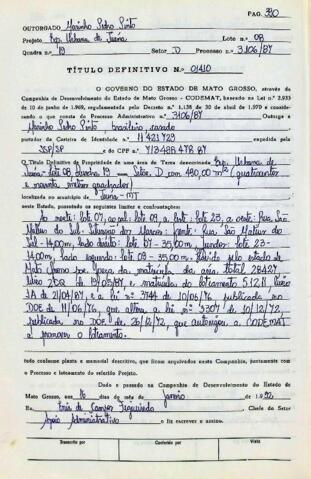 PAG. 330
OUTORGADO Marinho Pedro Pinto
Projeto Exp. Urbana de Juína Lote n.º 08
Quadra n.º 19 Setor D Processo n.º 3.106/87
TÍTULO DEFINITIVO N.º 01410
O GOVERNO DO ESTADO DE MATO GROSSO, através da
Companhia de Desenvolvimento do Estado de Mato Grosso - CODEMAT, baseado na Lei n.º 2.933
de 10 de junho de 1969, regulamentada pelo Decreto n.º 1.138 de 30 de abril de 1970 e considerando
o que consta do Processo Administrativo n.º 3106/87 Outorga a
Marinho Pedro Pinto brasileiro, casado
portador da Carteira de Identidade n.º 11.421.729 expedida pela
SSP/SP e do CPF n.º 413.485.478.87
O Título Definitivo de Propriedade de uma área de Terra denominada Exp. Urbana de
Juína - lote 08 quadra 19 - Setor D com 490,00 m² (quatrocentos
e noventa metros quadrados)
localizada no município de Juína - MT
neste Estado, possuindo os seguintes limites e confrontações:
Ao norte: lote 07, ao sul: lote 09, a leste: lote 23, a oeste: Rua São
Mateus do Sul. Situação dos Marcos: frente: Rua São Mateus do
Sul - 14,00m, lado direito: lote 07 - 35,00m, fundos: lote 23 -
14,00m, lado esquerdo: lote 09 - 35,00m. Havido pelo estado de
Mato Grosso por força da matrícula da área total 28427
livro 2CQ de 19/03/87 e matrícula do loteamento 51211 livro
de 21/04/87 e a lei nº 3744 de 10/06/76 publicada no
DOE de 11/06/76, que altera a lei nº 3307 de 10/12/72,
publicada no DOE de 26/12/72, que autorizou a CODEMAT
a promover o loteamento.
tudo conforme planta e memorial descritivo, que ficam arquivados nesta Companhia, juntamente com
o Processo e loteamento do referido Projeto.
Dado e passado na Companhia de Desenvolvimento do Estado de
Mato Grosso, em 16 dias do mês de janeiro de 1.992
Eu, de Campos Figueiredo Chefe do Setor
Apoio Administrativo o fiz escrever e assino.
Transcrito por Conferido por Visto